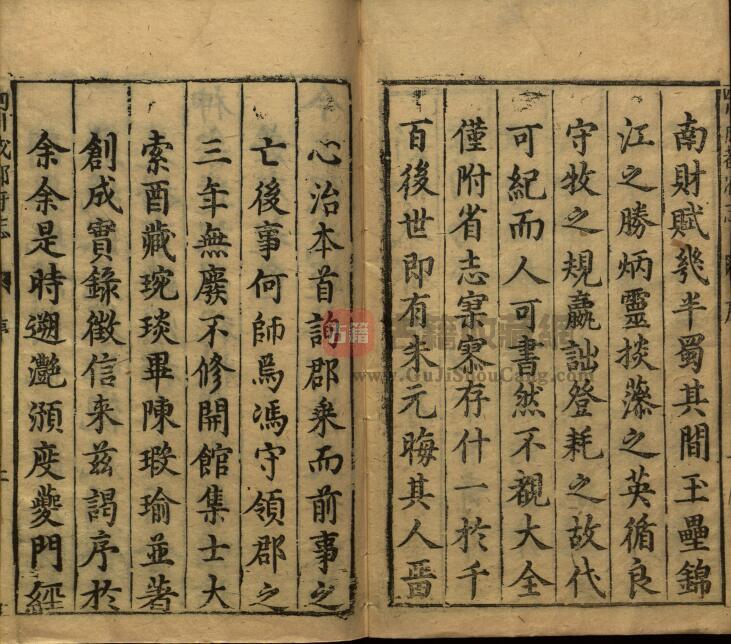 南財賦幾半蜀其間玉壘錦
江之勝炳靈掞藻之英循良
守牧之規贏詘登耗之故代
可紀而人可書然不覩大全
僅附省志寥寥存什一於千
百後世即有朱元晦其人畱
心治本首詢郡乗而前事之
亡後事何師焉馮守領郡之
三年無廢不修開館集士大
索酉藏琬琰畢陳瑕瑜並著
創成實錄徵信来茲謁序於
余余是時遡灧澦度夔門經
古籍
www.GuJiShouCang.com